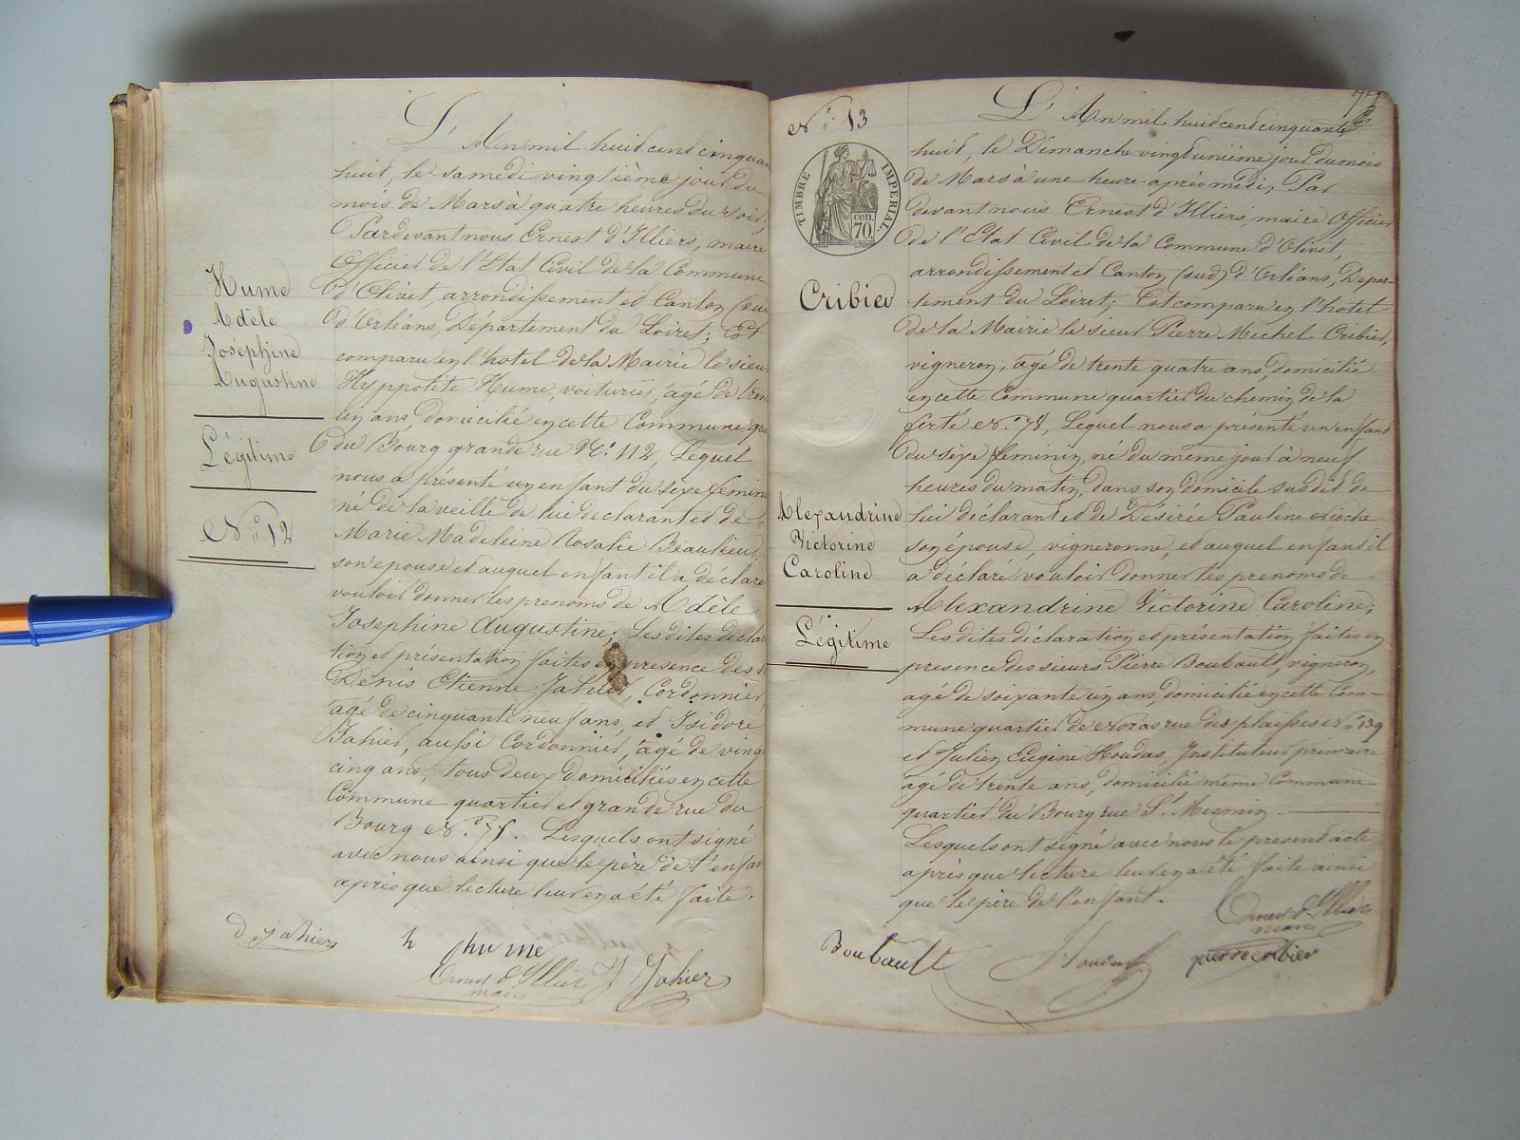 Hume
Adèle
Joséphine
Augustine
Légitime
N° 12
L'An mil huit cent cinquan
huit, le samedi vingtième jour du
mois de Mars à quatre heures du soir,
Pardevant nous Ernest d'Illiers, maire
Officier de l'Etat Civil de la Commune
d'Olivet, arrondissement et Canton (sud
d'Orléans, Département du Loiret; Est
comparu en l'hotel de la Mairie le sieur
Hyppolite Hume, voiturier, âgé de tren
un ans, domicilié en cette Commune qu
du Bourg grande rue N° 112, Lequel
nous a présenté un enfant du sexe feminin
né de la veille de lui declarant et de
Marie Madeleine Rosalie Beaulieu,
son épouse et auquel enfant il a déclaré
vouloir donner les prenoms de Adèle
Josephine Augustine; Les dites déclara
tion et présentation faites en presence des
Denis Etienne Jahier, Cordonnier,
âgé de cinquante neuf ans, et Isidore
Jahier, aussi Cordonnier, âgé de vingt
cinq ans, tous deux domiciliés en cette
Commune quartier et grande rue du
Bourg N° 75. Lesquels ont signé
avec nous ainsi que le père de l'enfan
après que lecture leur en a été faite.
D Jahier
h hume
Ernest d'Illiers
maire
J Jahier
N° 13
TIMBRE IMPERIAL
CEN.
70
Cribier
Alexandrine
Victorine
Caroline
Légitime
L'An mil huit cent cinquante
huit, le Dimanche vingt unième jour du mois
de Mars à une heure après midi, Par
devant nous Ernest d'Illiers, maire Officier
de l'Etat Civil de la Commune d'Olivet,
arrondissement et Canton (sud) d'Orléans, Depar-
tement du Loiret; Est comparu en l'hotel
de la Mairie le sieur Pierre Michel Cribier,
vigneron, âgé de trente quatre ans, domicilié
en cette Commune quartier du chemin de la
ferté N° 78, Lequel nous a présenté un enfant
du sexe feminin, né du même jour à neuf
heures du matin, dans son domicile susdit de
lui déclarant et de Désirée Pauline
son épouse, vigneronne, et auquel enfant il
a déclaré vouloir donner les prenoms de
Alexandrine Victorine Caroline;
Les dites déclaration et présentation faites en
presence des sieurs Pierre Boubault, vigneron,
âgé de soixante un ans, domicilié en cette Com-
mune quartier de rue des N° 139
et Julien Eugène Houdas, Instituteur primaire
âgé de trente ans, domicilié même Commune
quartier du Bourg rue St Mesmin
Lesquels ont signé avec nous le present acte
après que lecture leur en a été faite ainsi
que le père de l'enfant.
Ernest d'Illiers
maire
Boubault
Houdas
pierre cribier